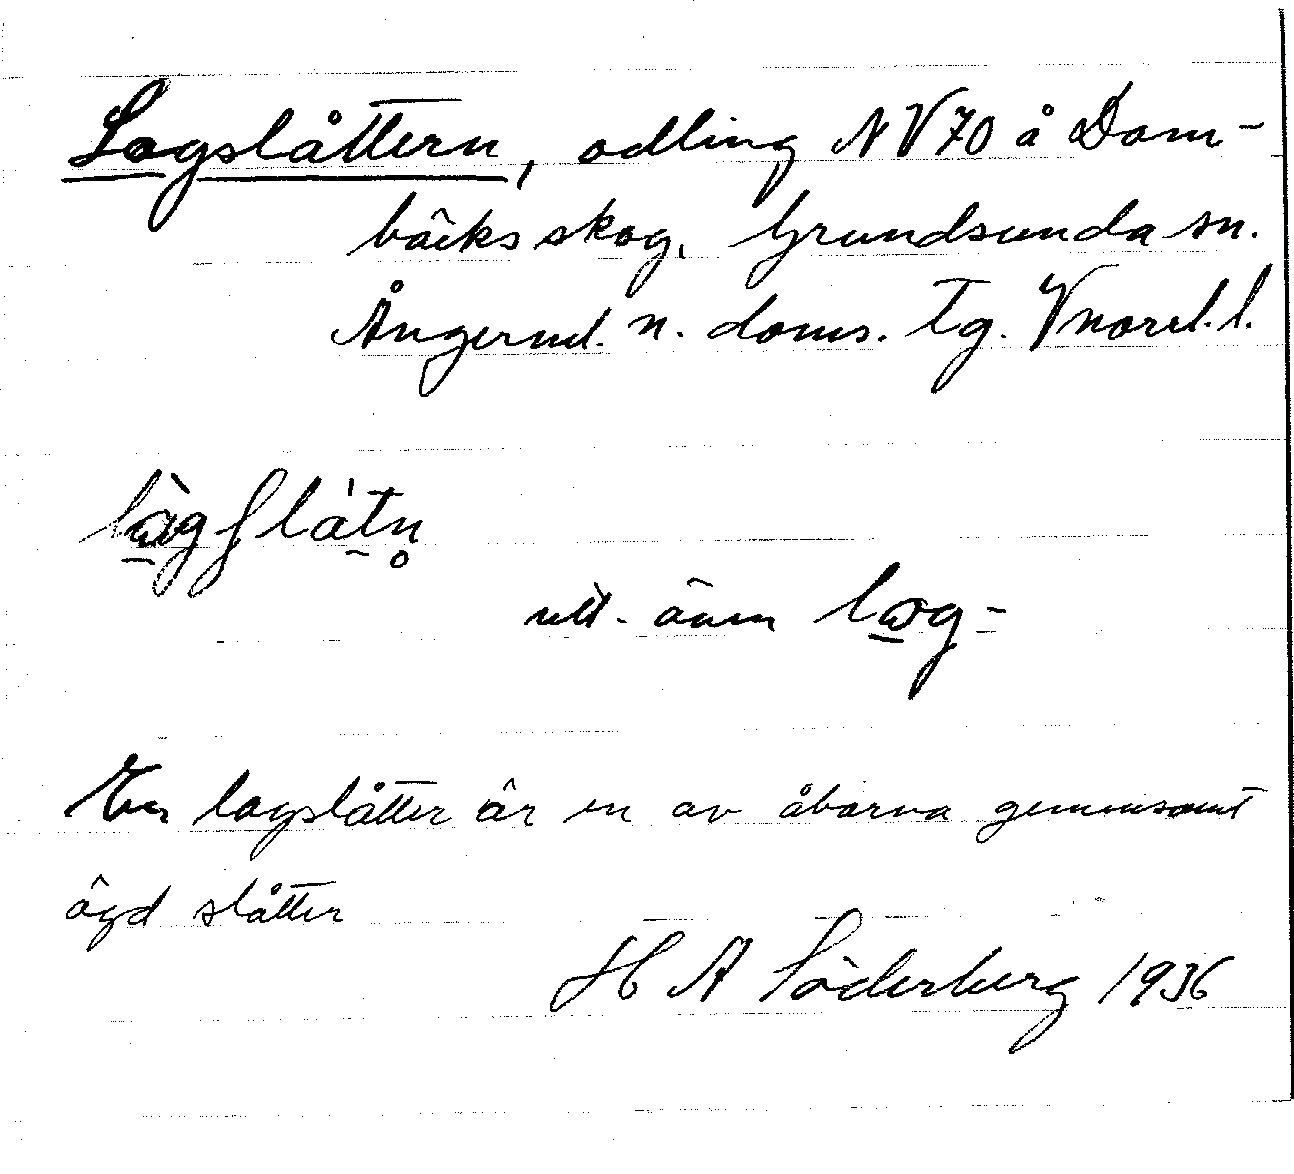 Logslåttern, odling NV70 å Dom-
bäcks skog, Grundsunda sn.
Ångerml. n. doms. Tg. Vnorrl.l.
utt. även
En lagslåtter är en av åbarna gemensamt
ägd slåtter
H A Söderberg 1936